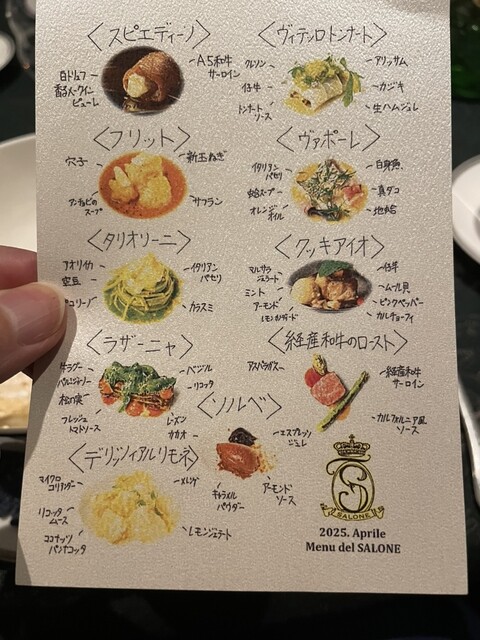 〈スピエディーノ〉
白トリュフ
香るメークイン
ピューレ
A5和牛
サーロイン
〈ヴィテッロトンナート〉
クレソン
仔牛
トンナート
ソース
アリッサム
カジキ
生ハムジュレ
〈フリット〉
穴子
新玉ねぎ
アンチョビの
スープ
サフラン
〈ヴァポーレ〉
イタリアン
パセリ
蛤スープ
オレンジ
オイル
白身魚
真ダコ
地蛤
〈タリオリーニ〉
アオリイカ
空豆
ペコリーノ
イタリアン
パセリ
カラスミ
〈クッキアイオ〉
マルサラ
ジェラート
ミント
アーモンド
仔牛
ムール貝
ピンクペッパー
カルチョーフィ
〈ラザーニャ〉
牛ラグー
パルミジャーノ
松の実
フレッシュ
トマトソース
バジル
リコッタ
レーズン
カカオ
〈経産和牛のロースト〉
アスパラガス
経産和牛
サーロイン
カルフォルニア風
ソース
〈ソルベ〉
エスプレッソ
ジュレ
キャラメル
パウダー
アーモンド
ソース
〈デリッツィアルリモネ〉
マイクロ
コリアンダー
リコッタ
ムース
ココナッツ
パンナコッタ
メレンゲ
レモンジェラート
SALONE
2025. Aprile
Menu del SALONE